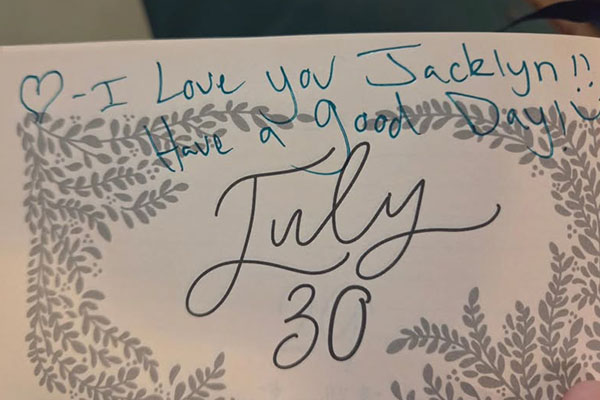 ♡-I Love you Jacklyn!!
Have a good Day!!
July
30